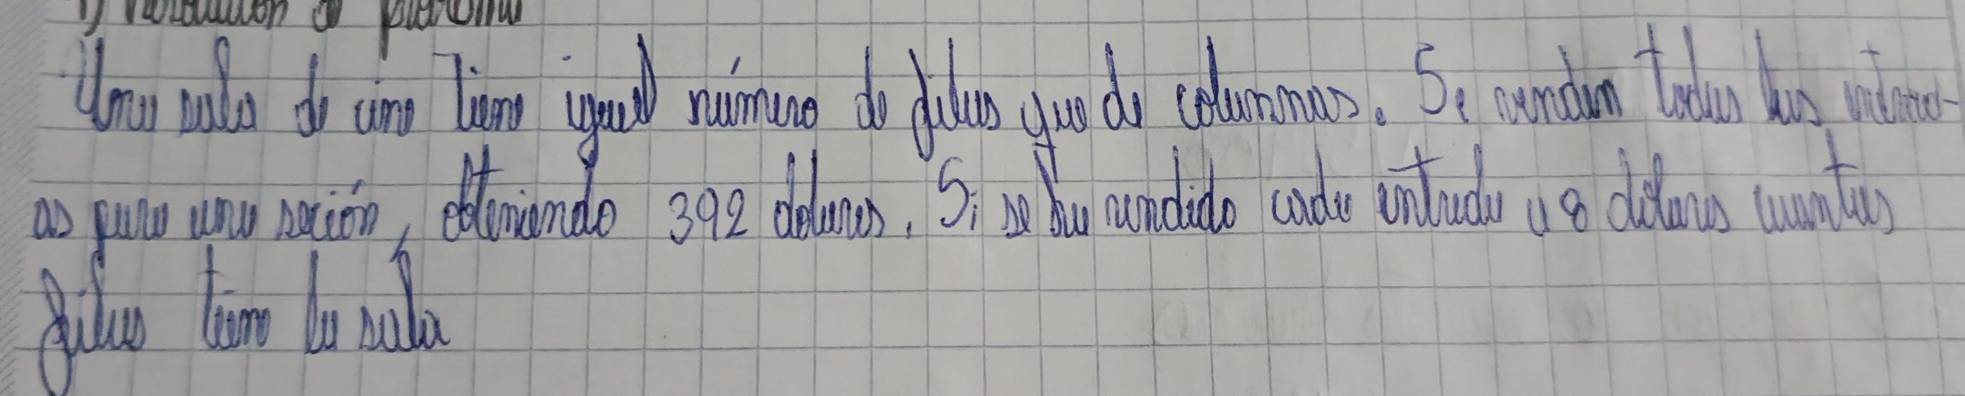 1) Resolución de problema
Una sala de cine tiene igual número de filas que de columnas. Se venden todas las entrad-
as para una seción, obteniendo 392 dolares. Si se ha vendido cada entrada a 8 dolares cuantas
filas tiene la sala